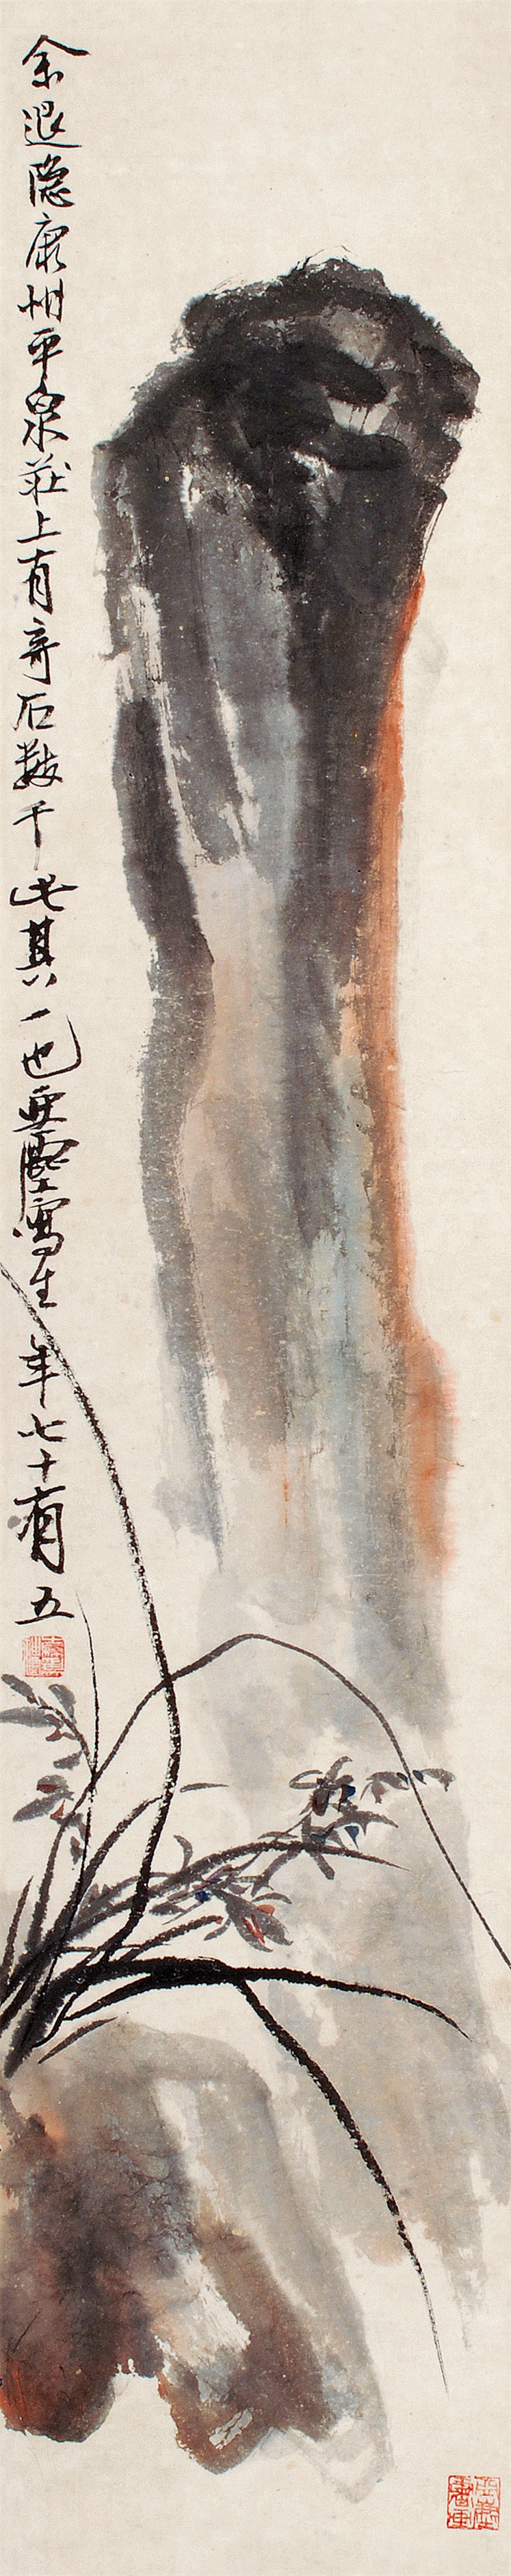 余退隐康州平泉莊上有奇石数千此其一也亞塵寫生年七十有五